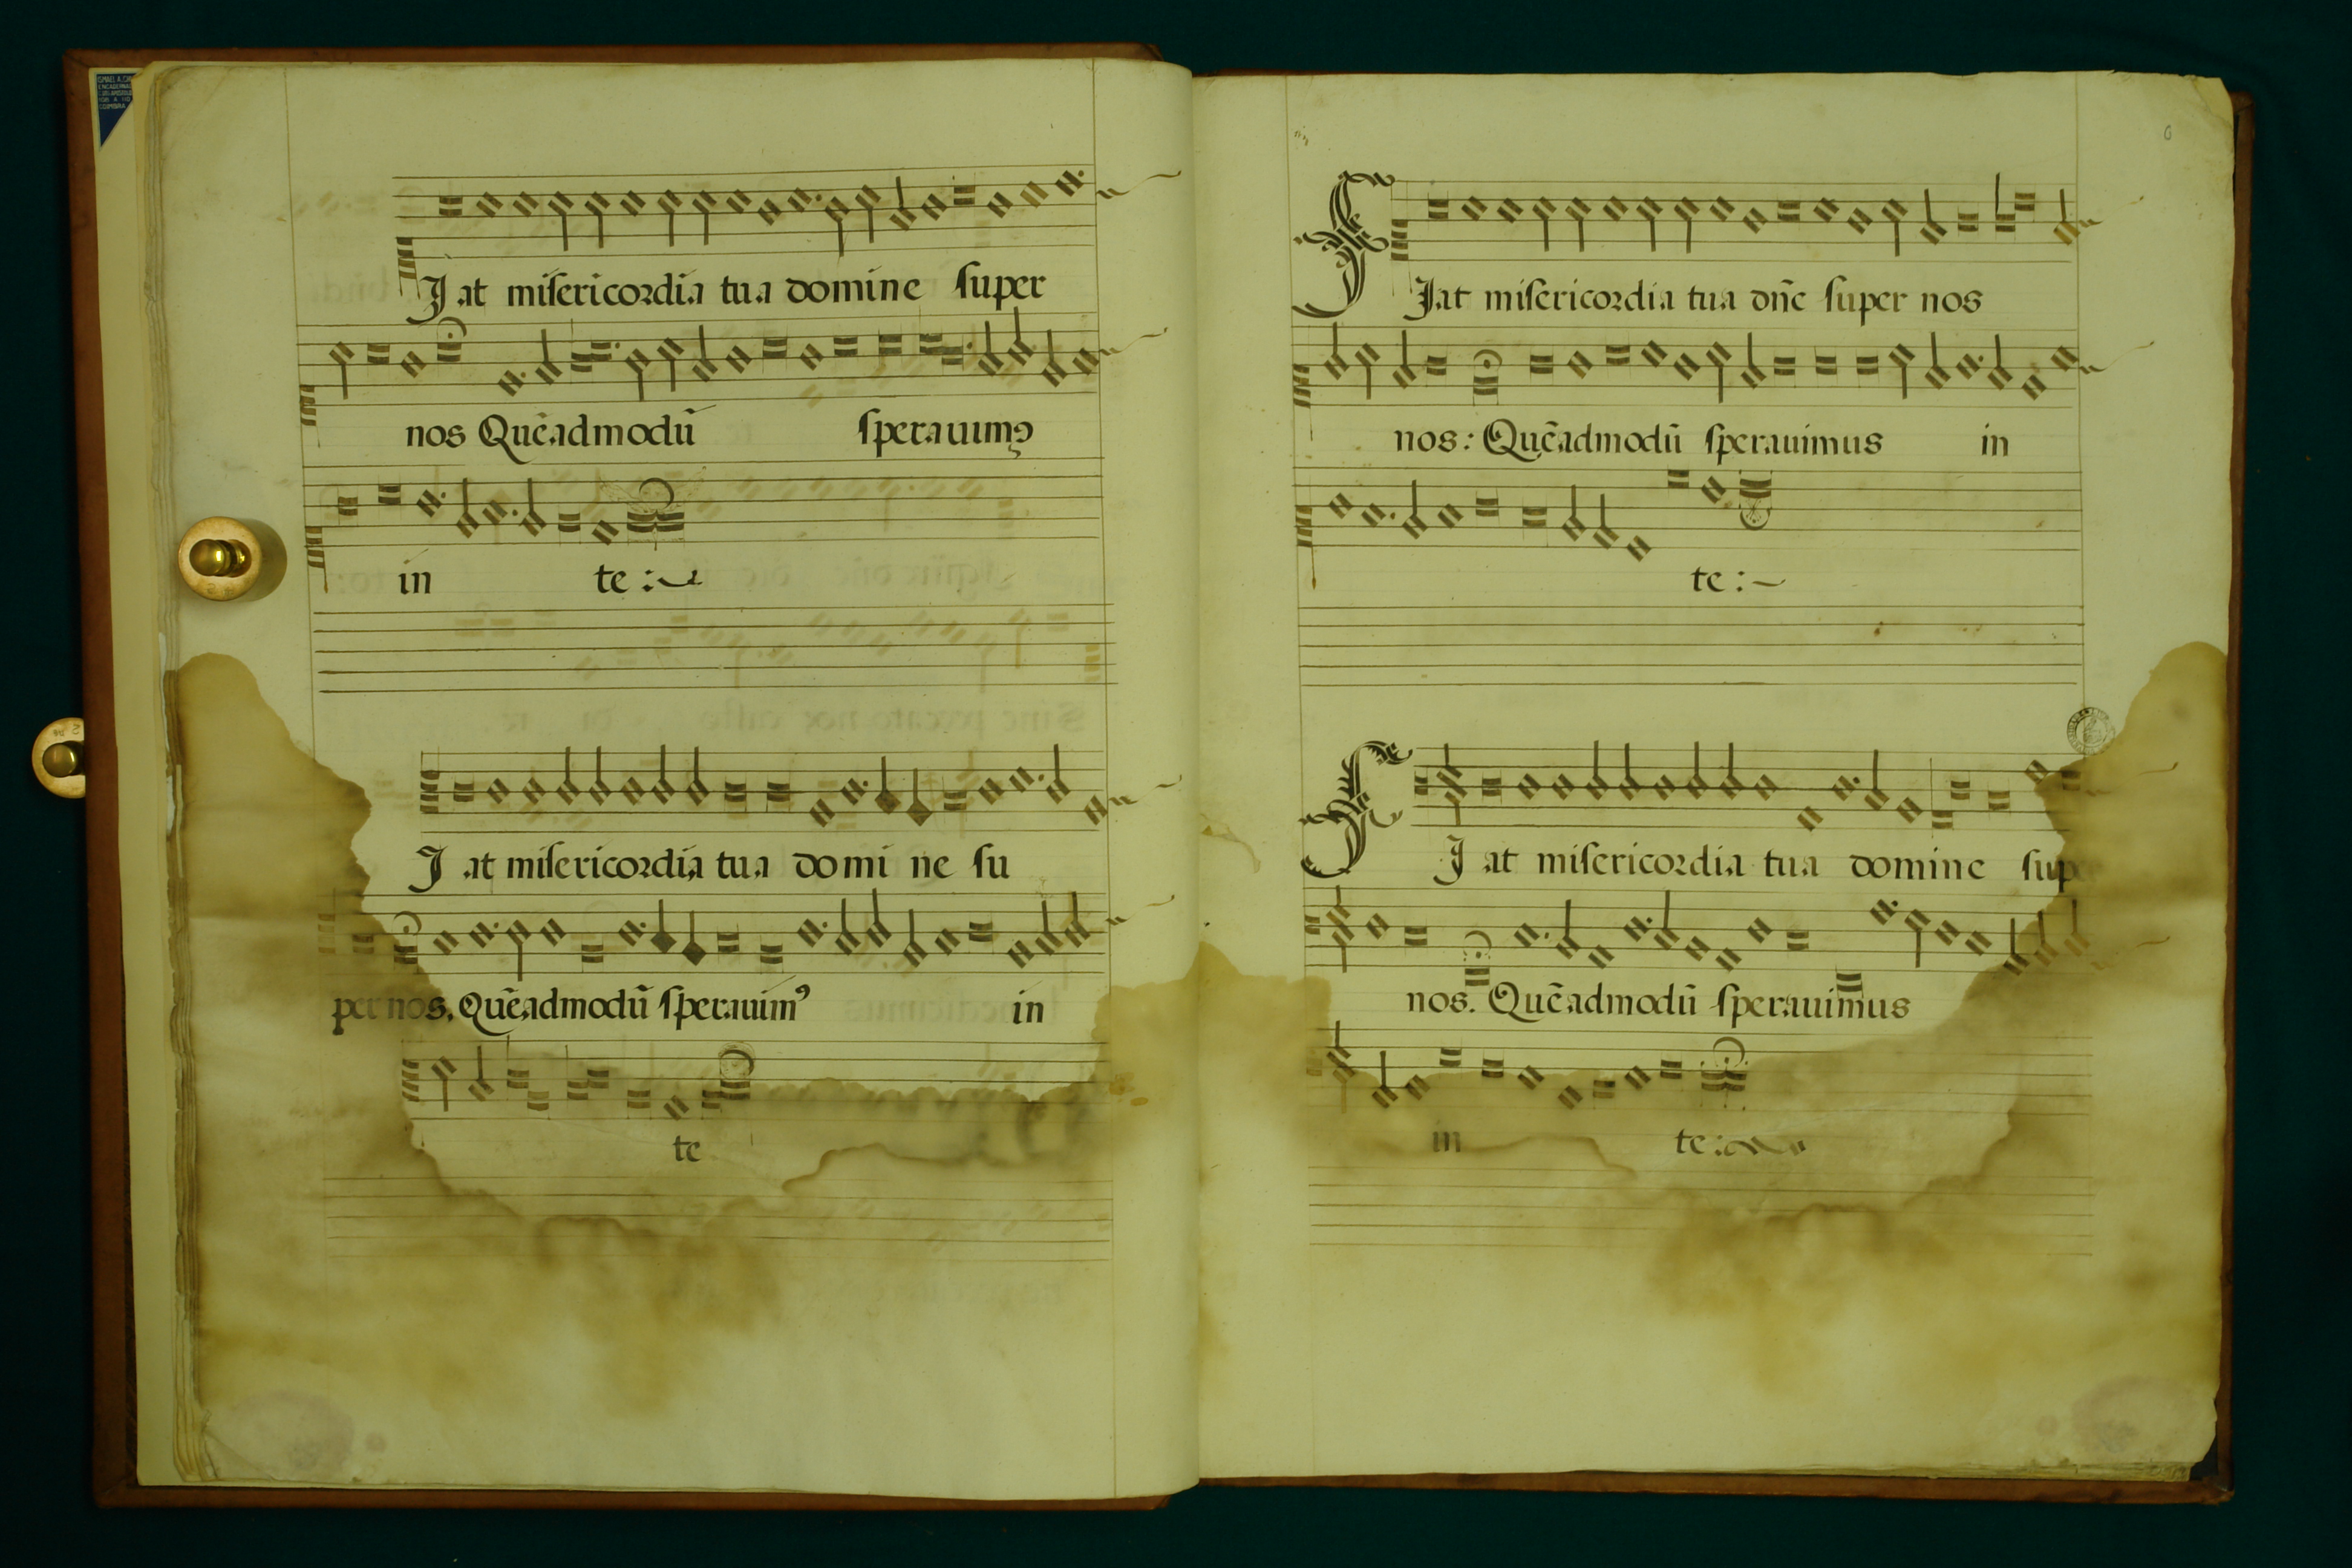 Jat misericordia tua domine super
nos Quēadmodū sperauimꝰ
in te :~
J at misericordia tua domi ne su
per nos. Quēadmodū sperauimꝰ in
te
Jat misericordia tua dn̄e super nos
nos : Quēadmodū sperauimus in
te :~
J at misericordia tua domine sup
nos. Quēadmodū sperauimus
in te :~